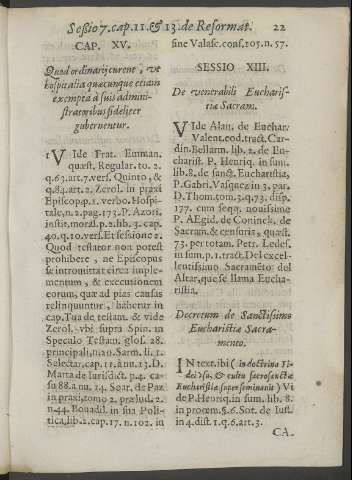 Sessio 7. cap. 11. & 13. de Reformat. 22
CAP. XV.
Quod ordinarij curent, ut
hospitalia quæcunque etiam
exempta à suis admini-
stratoribus fideliter
gubernentur.
1 VIde Frat. Emman.
quæst. Regular. to. 2.
q.63.art.7.vers. Quinto, &
q.84.art.2. Zerol. in praxi
Episcop.p.1. verbo. Hospi-
tale, n.2.pag.173. P. Azori.
instit.moral.p.2.lib.3. cap.
40.q.10.vers. Et sessione 2.
Quod testator non potest
prohibere, ne Episcopus
se intromittat circa imple-
mentum, & executionem
eorum, quæ ad pias causas
relinquuntur, habetur in
cap. Tua de testam. & vide
Zerol. vbi supra Spin. in
Speculo Testam. glos. 28.
principali, n.20. Sarm. li. 1.
Selectar. cap. 11. à nu. 13. D.
Marta de Iurisdict. p.4. ca-
su 88. à nu. 14. Soar. de Paz
in praxi, tomo 2. prælud. 2.
n.44. Bouadil. in sua Poli-
tica, lib.2. cap.17. n.102. in
sine Valasc. cons.105.n.57.
SESSIO XIII.
De venerabili Eucharis-
tiæ Sacram.
VIde Alan. de Euchar.
Valent. eod. tract. Car-
din. Bellarm. lib. 2. de Eu-
charist. P. Henriq. in sum.
lib.8. de sanct. Eucharistia,
P. Gabri. Vasquez in 3. par.
D. Thom. tom. 3. q.73. disp.
177. cum seqq. nouissime
P. Ægid. de Coninck. de
Sacram. & censuris, quæst.
73. per totam. Petr. Ledes.
in sum. p. 1. tract. Del excel-
lentissimo Sacramēto del
Altar, que se llama Eucha-
ristia.
Decretum de Sanctissimo
Eucharistiæ Sacra-
mento.
IN text. ibi ( in doctrina Fi-
dei usu, & cultu sacrosanctæ
Eucharistiæ superseminauit ) Vi
de P. Henriq. in sum. lib. 8.
in proœm. §.6. Sot. de Iust.
in 4. dist. 1. q.6. art. 3.
CA-